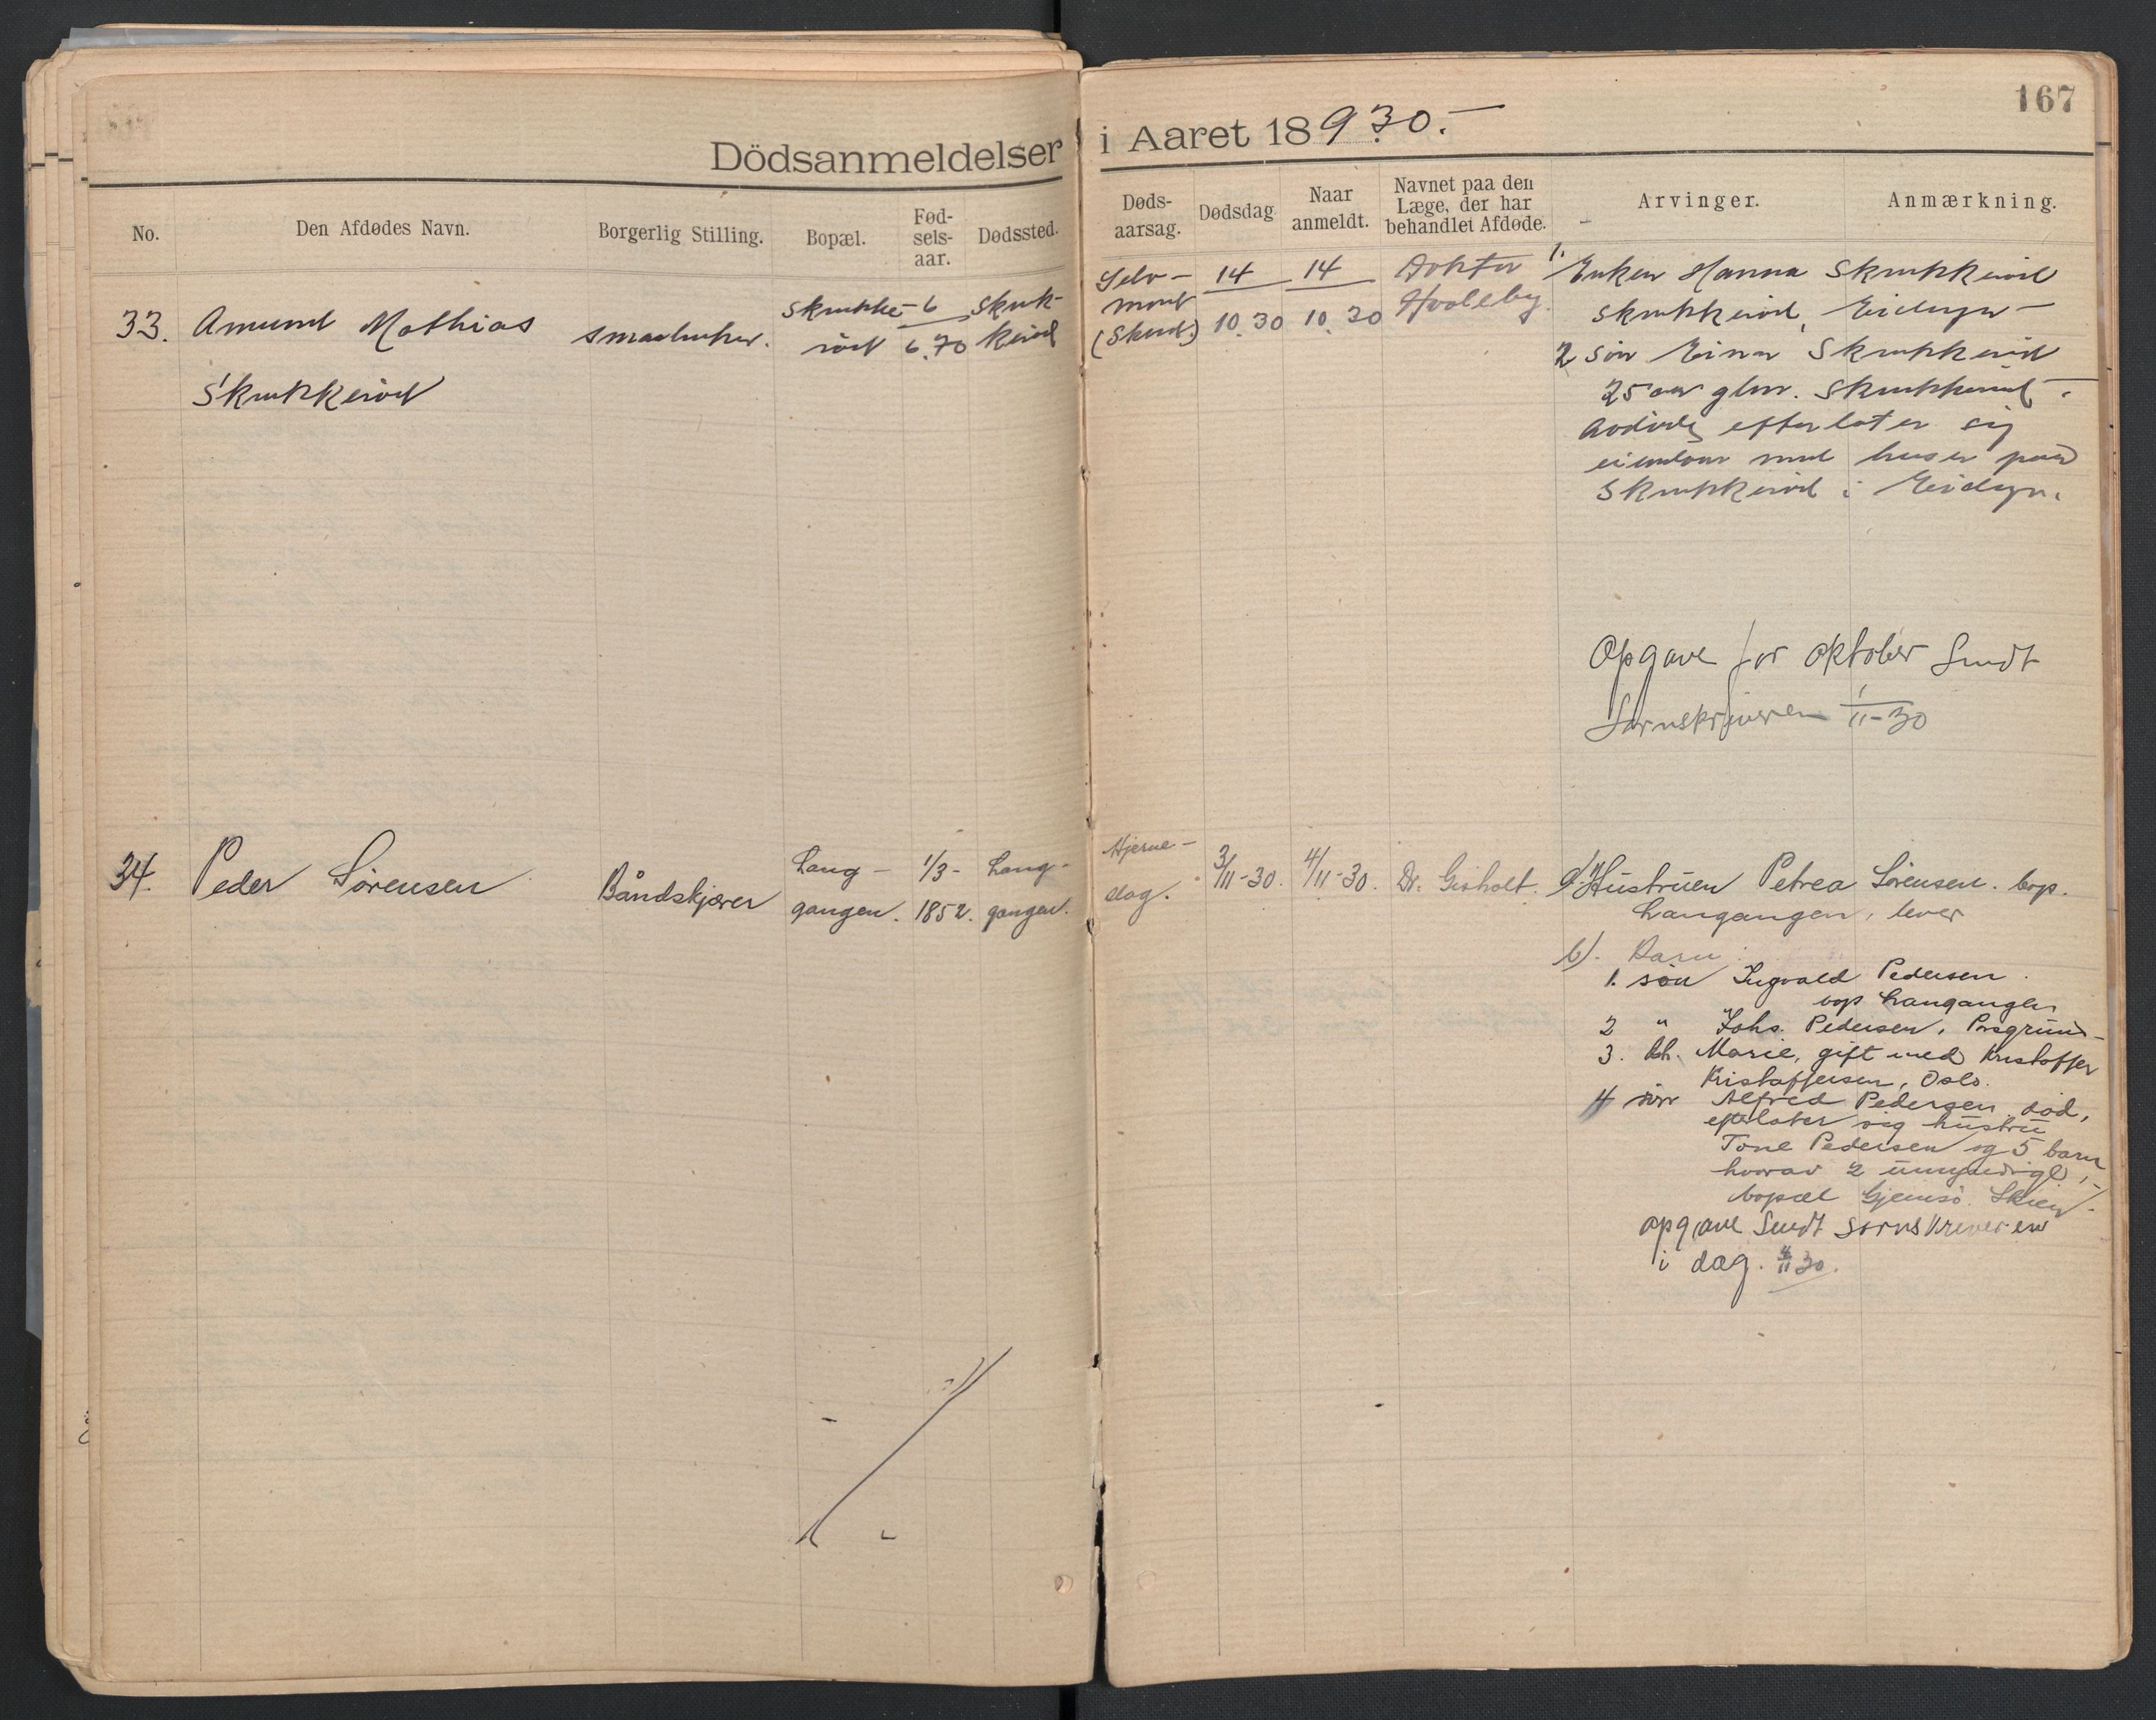 167
Dödsanmeldelser i Aaret 18930.-
No.
Den Afdødes Navn.
Borgerlig Stilling.
Bopæl.
Fød-
sels-
aar.
Dødssted.
Døds-
aarsag.
Dødsdag
Naar
anmeldt.
Navnet paa den
Læge, der har
behandlet Afdøde.
Arvinger.
Anmærkning.
33.
Amund Mathias
Skrukkeröd
smaabruker.
Skrukke-
röd
6
6.70
Skruk-
keröd
Selv-
mord
(Skud)
14
10.30
14
10.30
Doktor
Hvaleby.
1. Enken Hanna Skrukkeröd
Skrukkeröd, Eidanger
2 Sön Einar Skrukkeröd
25 aar glm. Skrukkeröd.
Avdöde efterlater sig
eiendom med huser paa
Skrukkeröd i Eidanger.
Opgave for oktober Sendt
Sornskriveren 1/11-30
34.
Peder Sörensen
Båndskjærer
Lang-
gangen.
1/3-
1852.
Lang-
gangen.
Hjerne-
slag.
3/11-30.
4/11-30.
Dr. Gisholt.
a) Hustruen Petrea Sörensen. bop.
Langangen, lever
b). Barn
1. sön Ingvald Pedersen.
bop Langangen
2 " Johs. Pedersen, Porsgrund-
3. dt. Marie, gift med Kristoffer
Kristoffersen, Oslo.
4 sön Alfred Pedersen död,
efterlater sig hustru
Tone Pedersen og 5 barn
hvorav 2 umyndige,
bopæl Gjemsö. Skien.
opgave Sendt Sornskriveren
i dag. 4/11 30.